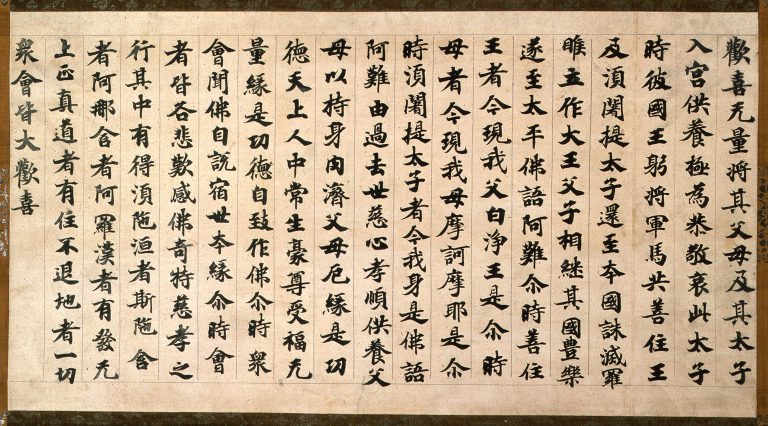 歡喜无量将其父母及其太子
入宮供養極為恭敬哀此太子
時彼國王躬将軍馬共善住王
及湏闍提太子還至本國誅滅羅
睺立作大王父子相継其國豊樂
遂至太平佛語阿難尒時善住
王者今現我父白浄王是尒時
母者今現我母摩訶摩耶是尒
時湏闍提太子者今我身是佛語
阿難由過去世慈心孝順供養父
母以持身肉濟父母厄緣是功
德天上人中常生豪尊受福无
量緣是功德自致作佛尒時衆
會聞佛自說宿世本緣尒時會
者皆各悲歎感佛奇特慈孝之
行其中有得湏陁洹者斯陁含
者阿那含者阿羅漢者有發无
上正真道者有住不退地者一切
衆會皆大歡喜